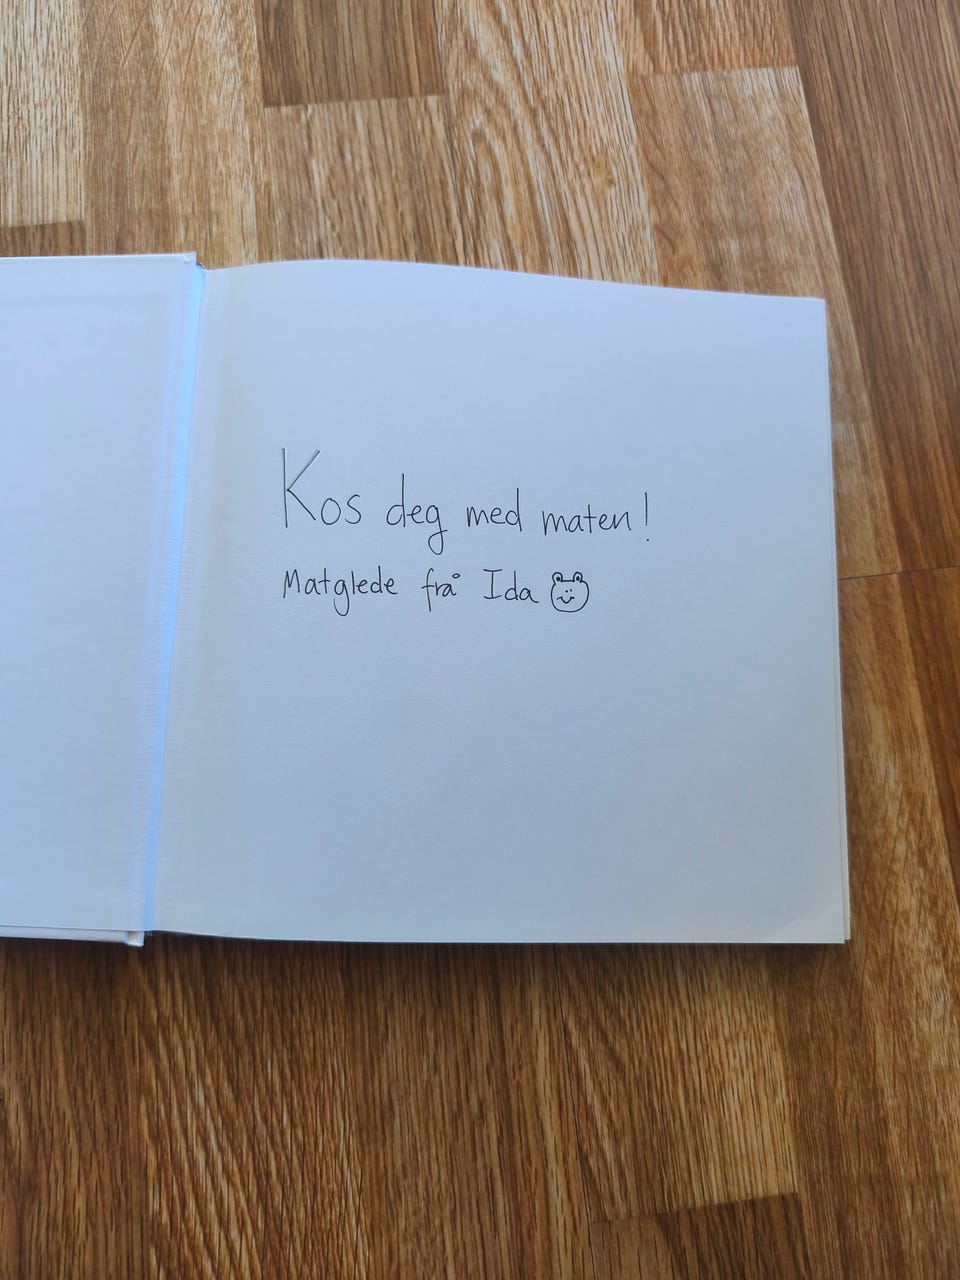 Kos deg med maten!
Matglede frå Ida